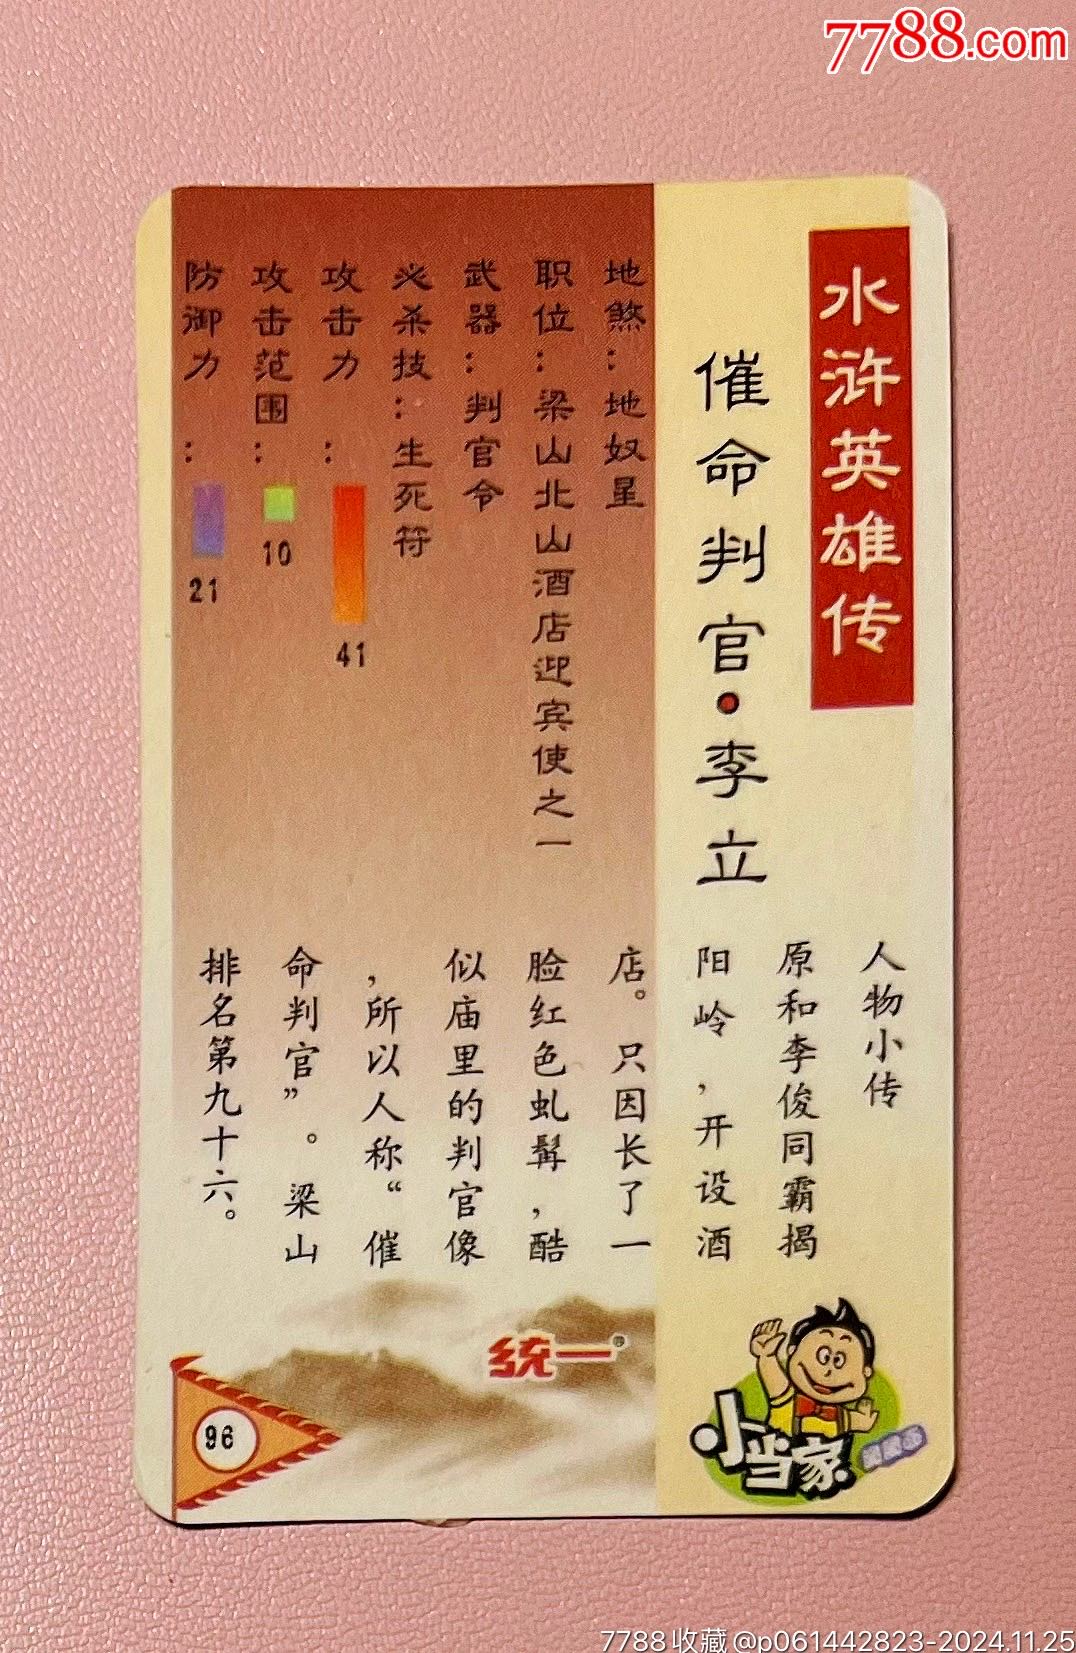 7788.com
水浒英雄传
催命判官·李立
地煞：地奴星
职位：梁山北山酒店迎宾使之一
武器：判官令
必杀技：生死符
攻击力：
41
攻击范围：
10
防御力：
21
人物小传
原和李俊同霸揭
阳岭，开设酒
店。只因长了一
脸红色虬髯，酷
似庙里的判官像
，所以人称“催
命判官”。梁山
排名第九十六。
统一®
小当家
96
7788收藏@p061442823-2024.11.25